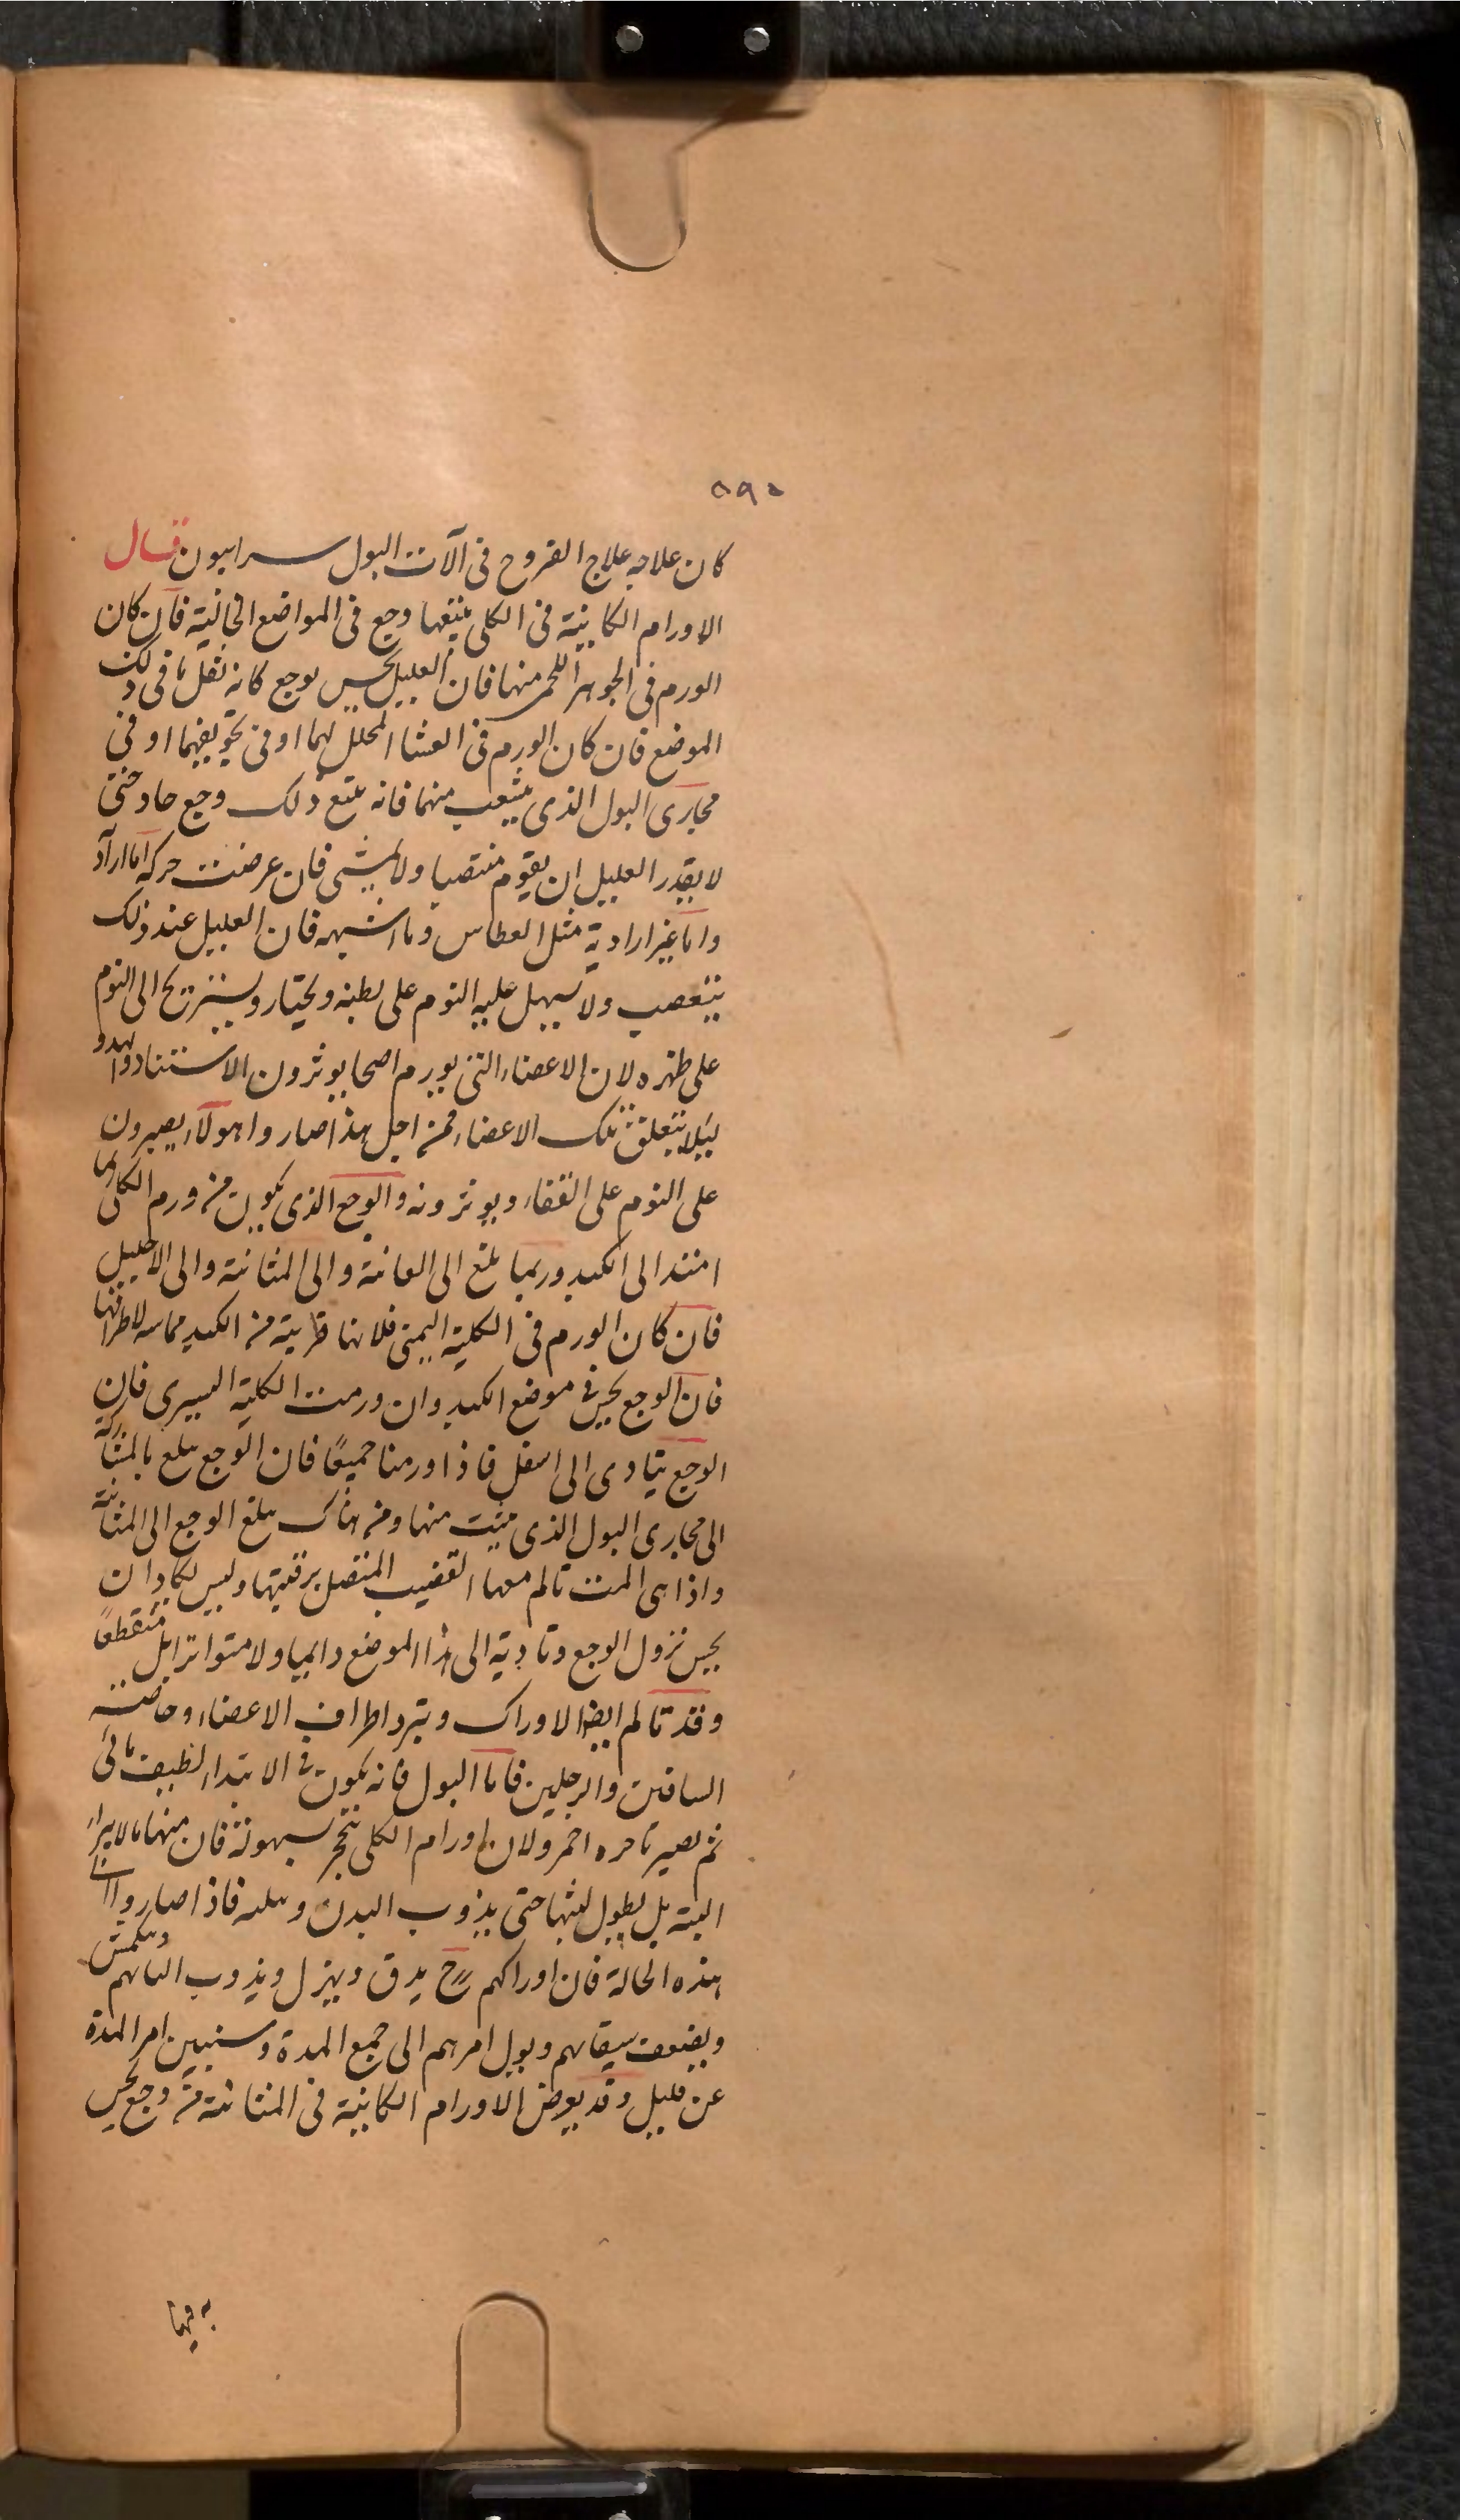 ٥٩٠
كان علاجه علاج القروح فى آلات البول سرابيون قال
الاورام الكاينة فى الكلى يتبعها وجع فى المواضع الخالية فان كان
الورم فى الجوهر اللحمى منها فان العليل يحس بوجع كانه ثقل ما فى ذلك
الموضع فان كان الورم فى الغشا المحلل لهما او فى تجويفهما او فى
مجارى البول الذى يتشعب منهما فانه يتبع ذلك وجع حاد حتى
لا يقدر العليل ان يقوم منتصبا ولا يمشى فان عرضت حركة اما ارآد
واما غير ارادية مثل العطاس وما اشبهه فان العليل عند ذلك
يتعصب ولا يسهل عليه النوم على بطنه ويختار ويستريح الى النوم
على ظهره لان الاعضاء التى يورم اصحا يوثرون الاستناد والهدو
ليلا يتعلق تلك الاعضاء فمن اجل هذا صاروا هولاء يصيرون
على النوم على القفاء ويوثرونه والوجع الذى يكون من ورم الكلى ربما
امتد الى الكبد وربما بلغ الى العانة والى المثانة والى الاحليل
فان كان الورم فى الكلية اليمنى فلانها قريبة من الكبد مماسه لاطرافها
فان الوجع يحس فى موضع الكبد وان ورمت الكلية اليسرى فان
الوجع يتادى الى اسفل فاذا ورمتا جميعًا فان الوجع يبلغ بالمشاركة
الى مجارى البول الذى ينبت منها ومن هناك يبلغ الوجع الى المثانة
واذا هى المت تالم معها القضيب المتصل برقبتها وليس يكاد ان
يحس نزول الوجع وتاديه الى هذا الموضع دايما ولا متواترا بل منقطعًا
وقد تالم ايضا الاوراك ويبرد اطراف الاعضاء وخاصة
الساقين والرجلين فاما البول فانه يكون فى الابتداء لطيف مائى
ثم يصير باخره احمر ولان اورام الكلى تتحجر بسهولة فان منها ما لا يبراء
البتة بل يطول لبثها حتى يذوب البدن فاذا صاروا الى
هذه الحالة فان اوراكهم ح يدق ويهزل ويذوب الياتهم وينكمش
ويضعف سيقانهم ويول امرهم الى جمع المدة وسنبين امر المدة
عن قليل وقد يعرض الاورام الكاينة فى المثانة من وجع يحس
به فيها